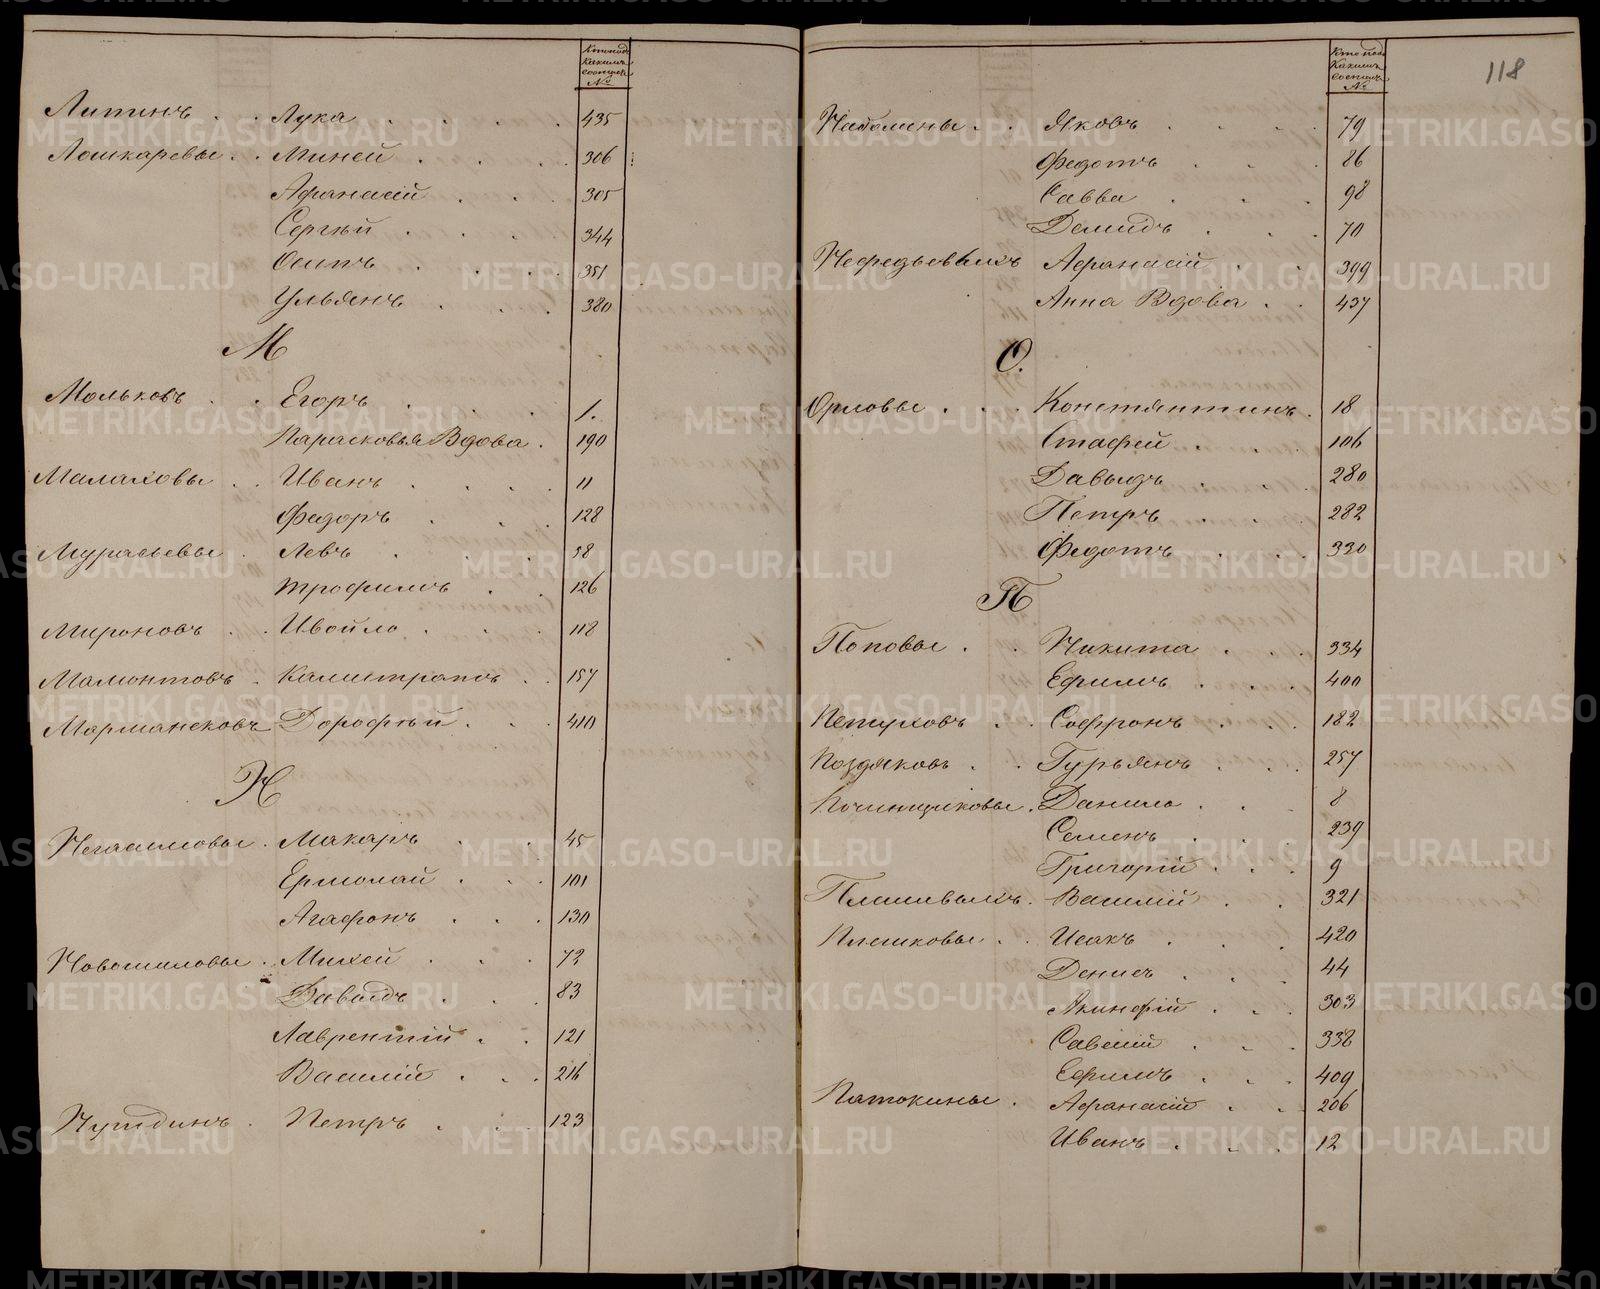 Кто подъ
Какимъ
состоитъ
№
Литинъ . . Лука . . . . 435
Лошкаревы . . Миней . . . . 306
Афанасій . . . 305
Сергѣй . . . . 344
Осипъ . . . . 351
Ульянъ . . . 380
М
Мольковъ . . Егоръ . . . 1.
Парасковья Вдова . 190
Малаховы . . Иванъ . . . . 11
Федоръ . . . 128
Мурасьевы . Левъ . . . 38
Трофимъ . . 126
Мироновъ . . Ивойло . . . 118
Мамонтовъ . Калистратъ . . 157
Марманековъ Дорофѣй . . . 410
Н
Негасимовы . Макаръ . . . 45
Ермолай . . . 101
Агафонъ . . . 130
Новошиловы . Михей . . . 72
Давыдъ . . . 83
Лаврентій . . 121
Василій . . . 216
Чутдинъ . Петръ . . . 123
118
Кто подъ
Какимъ
состоитъ
№
Набомены . . Яковъ . . . . 79
Федотъ . . . 86
Савва . . . 98
Демидъ . . . 70
Нефедьевыхъ Афанасій . . 399
Анна Вдова . . 437
О.
Орловы . . . Константинъ . 18
Стафей . . . 106
Давыдъ . . . 280
Петръ . . . 282
Федотъ . . . 330
П
Поповы . . Никита . . . 334
Ефимъ . . . 400
Петуховъ . . Софронъ . . . 182
Поздяковъ . . Гурьянъ . . . 257
Починщиковы . Данило . . . 8
Семенъ . . . 239
Григорій . . . 9
Плешивыхъ . Василій . . . 321
Плешковы . . Исакъ . . . 420
Денисъ . . . 44
Акинфій . . . 303
Савелій . . . 338
Ефимъ . . . 409
Патокины . Афанасій . . 206
Иванъ . . . 12